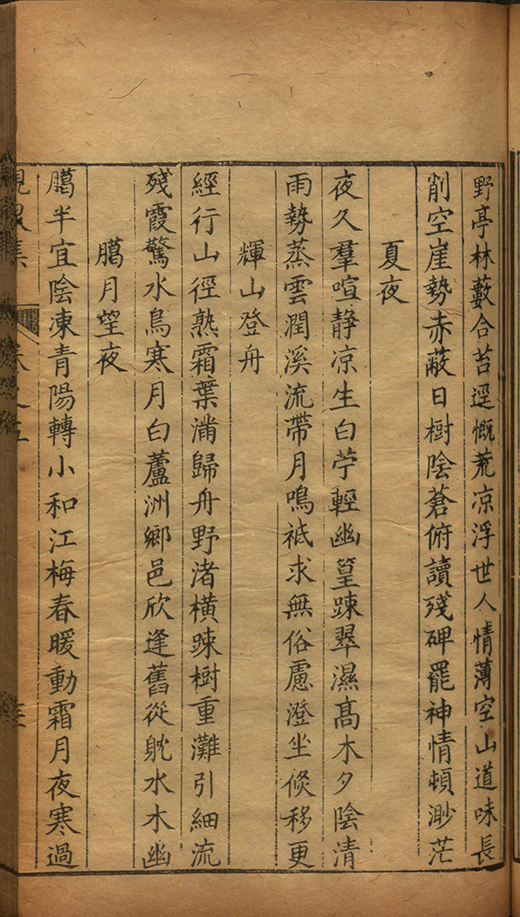 野亭林藪合苔逕慨荒凉浮世人情薄空山道味長
削空崖勢赤蔽日樹陰蒼俯讀殘碑罷神情頓渺茫
夏夜
夜久羣喧静凉生白苧輕幽篁踈翠濕高木夕陰清
雨勢蒸雲潤溪流帶月鳴祗求無俗慮澄坐倐移更
輝山登舟
經行山徑熟霜葉滿歸舟野渚橫踈樹重灘引細流
殘霞驚水鳥寒月白蘆洲鄉邑欣逢舊從眈水木幽
臈月望夜
臈半宜陰凍青陽轉小和江梅春暖動霜月夜寒過